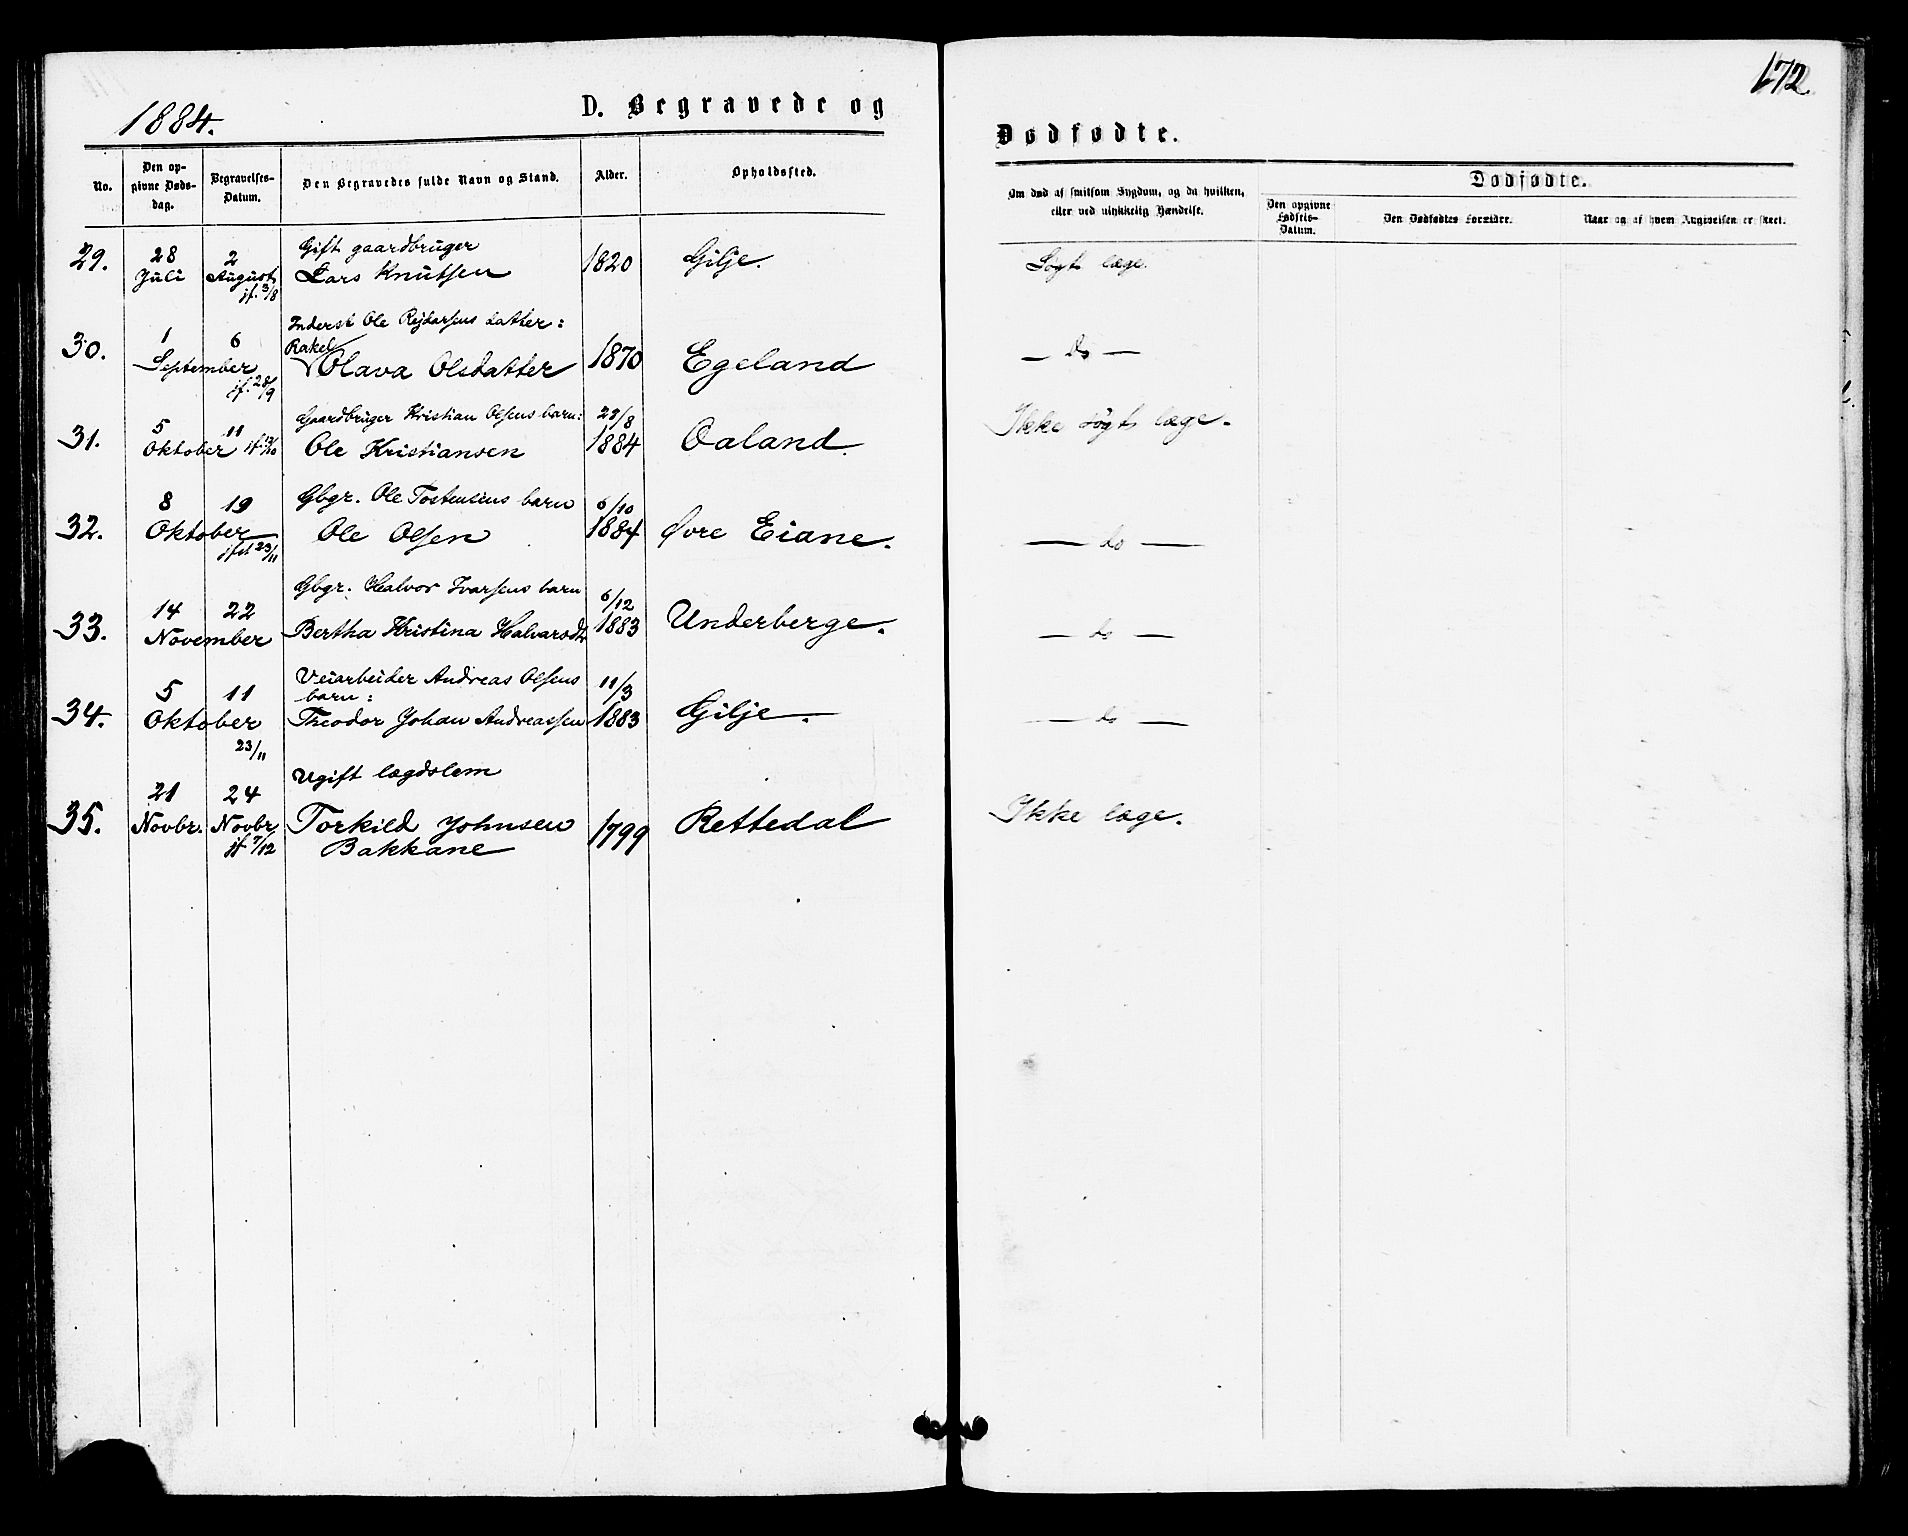 172
1884.
D. Begravede og
Dødfødte.
No.
Den op-
givne Døds-
dag.
Begravelses-
Datum.
Den Begravedes fulde Navn og Stand.
Alder.
Opholdssted.
Om død af smitsom Sygdom, og da hvilken,
eller ved ulykkelig Hændelse.
Dødfødte.
Den opgivne
Fødsels-
Datum.
Den Dødfødtes Forældre.
Naar og af hvem Angivelsen er skeet.
29. 28 Juli 2 August jf. 3/8
Gift gaardbruger
Lars Knutsen 1820 Gilje. Søgt læge.
30. 1 6 September jf. 28/9
Inderst Ole Rejdarsens datter:
Rakel
Olava Olsdatter 1870 Egeland — Do —
31. 5 11 Oktober jf. 12/10
Gaardbruger Kristian Olsens barn: 29/8
Ole Kristiansen 1884 Oaland. Ikke søgt læge.
32. 8 19 Oktober jfst 23/11
Gbgr. Ole Tostensens barn 6/10
Ole Olsen 1884 Øvre Eiane. — do —
33. 14 22 November
Gbgr. Halvor Ivarsens barn 6/12
Bertha Kristina Halvarsdtr 1883 Underberge. — do —
34. 5 11 Oktober 23/11
Veiarbeider Andreas Olsens
barn: 11/3
Theodor Johan Andreassen 1883 Gilje. — do —
35. 21 Novbr. 24 Novbr. jf 7/12
Ugift lægdslem
Torkild Johnsen 1799 Rettedal Ikke læge.
Bakkane